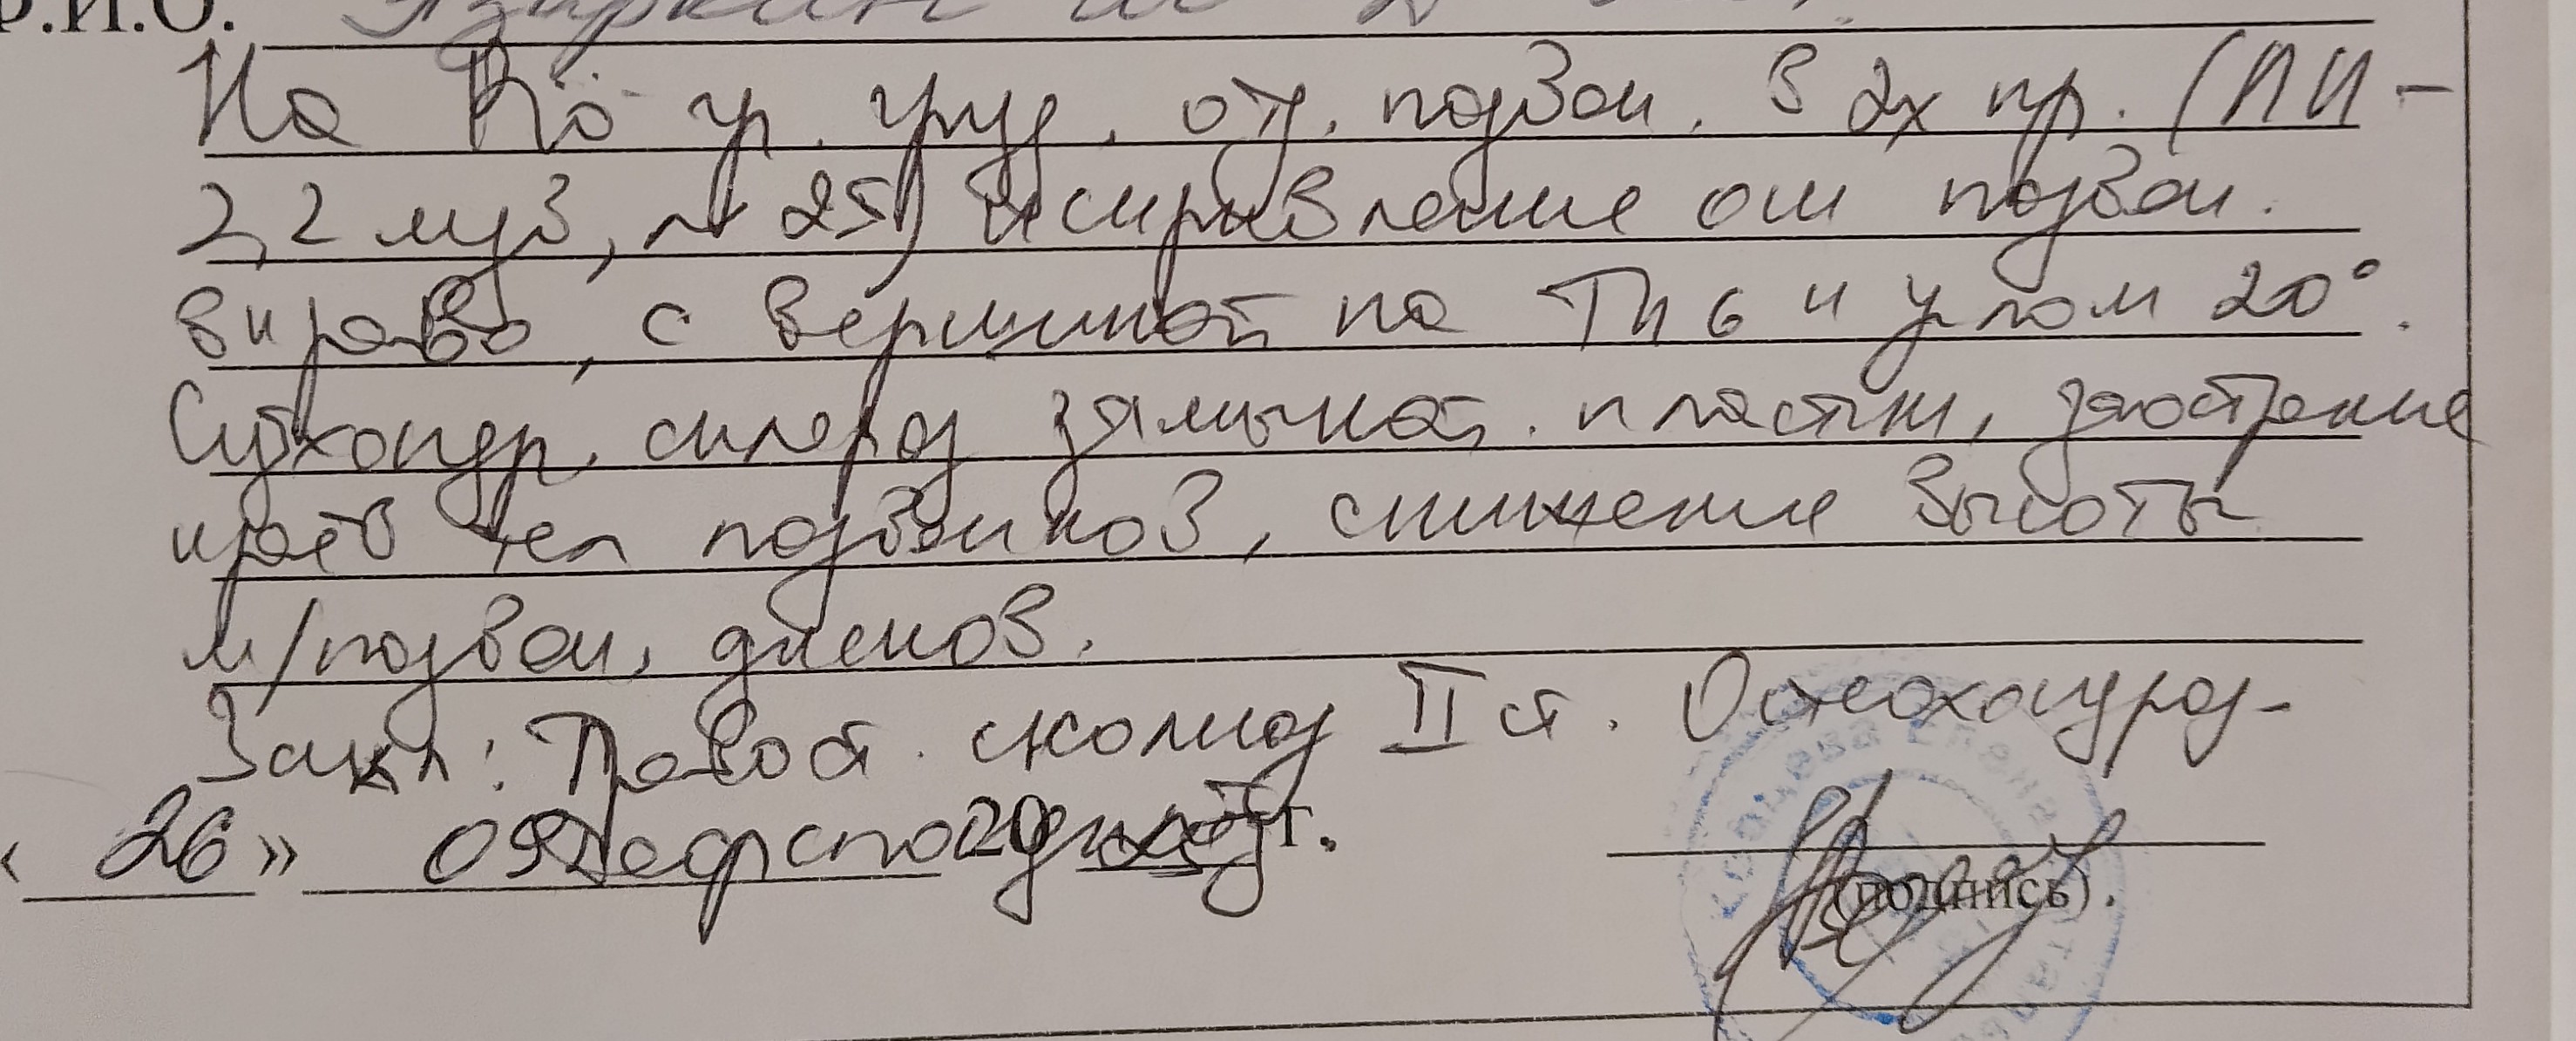 Ф.И.О.
На Rö гр. груд. от. позвон. в 2х пр. (ЛИ-
2,2 мзв, № 251) Искривление оси позвон.
вправо, с вершиной на Th 6 и углом 20°.
Субхондр. склероз замыкат. пластин, заострение
краёв тел позвонков, снижение высоты
м/позвон. дисков.
Закл: Правост. сколиоз II ст. Остеохондроз.
« 26 » 09 20 г.
(подпись).